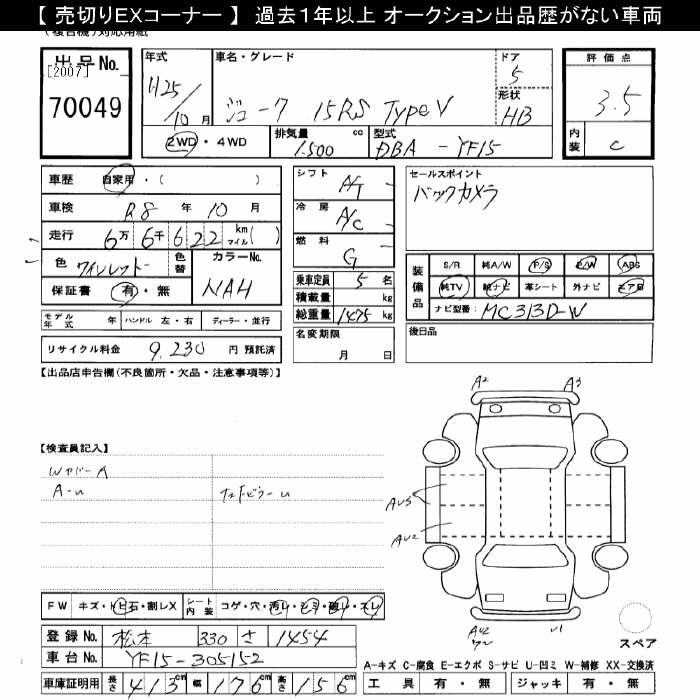 【 売切りEXコーナー 】 過去1年以上 オークション出品歴がない車両
(複合機)対応用紙
出品No.
[2007]
70049
年式
H25/10月
車名・グレード
ジューク 15RS TypeV
ドア
5
形状
HB
評価点
3.5
内装
C
2WD・4WD
排気量 cc
1500
型式
DBA-YF15
車歴 自家用・( )
車検 R8年10月
走行 6万6千622 km マイル( )
色 ワインレッド
色替
カラーNo.
NAH
保証書 有・無
モデル年式 年 ハンドル 左・右 ディーラー・並行
リサイクル料金 9,230円 預託済
シフト
A/T
冷房
A/C
燃料
G
乗車定員 5名
積載量 kg
総重量 1475kg
名変期限
月 日
セールスポイント
バックカメラ
装備品
S/R 純A/W P/S P/W ABS
純TV 純ナビ 革シート 外ナビ エアB
ナビ型番: MC313D-W
後日品
【出品店申告欄(不良箇所・欠品・注意事項等)】
【検査員記入】
Wカバー A
A-U
A2
A3
AU3
AU2
AU2
U1
FW キズ・トビ石・割レX
シート内装 コゲ・穴・汚レ・シミ・破レ・スレ
登録No. 松本 330 さ 1454
車台No. YF15-305152
車庫証明用 長さ 413cm 幅 176cm 高さ 156cm
スペア
A-キズ C-腐食 E-エクボ S-サビ U-凹ミ W-補修 XX-交換済
工具 有・無 ジャッキ 有・無